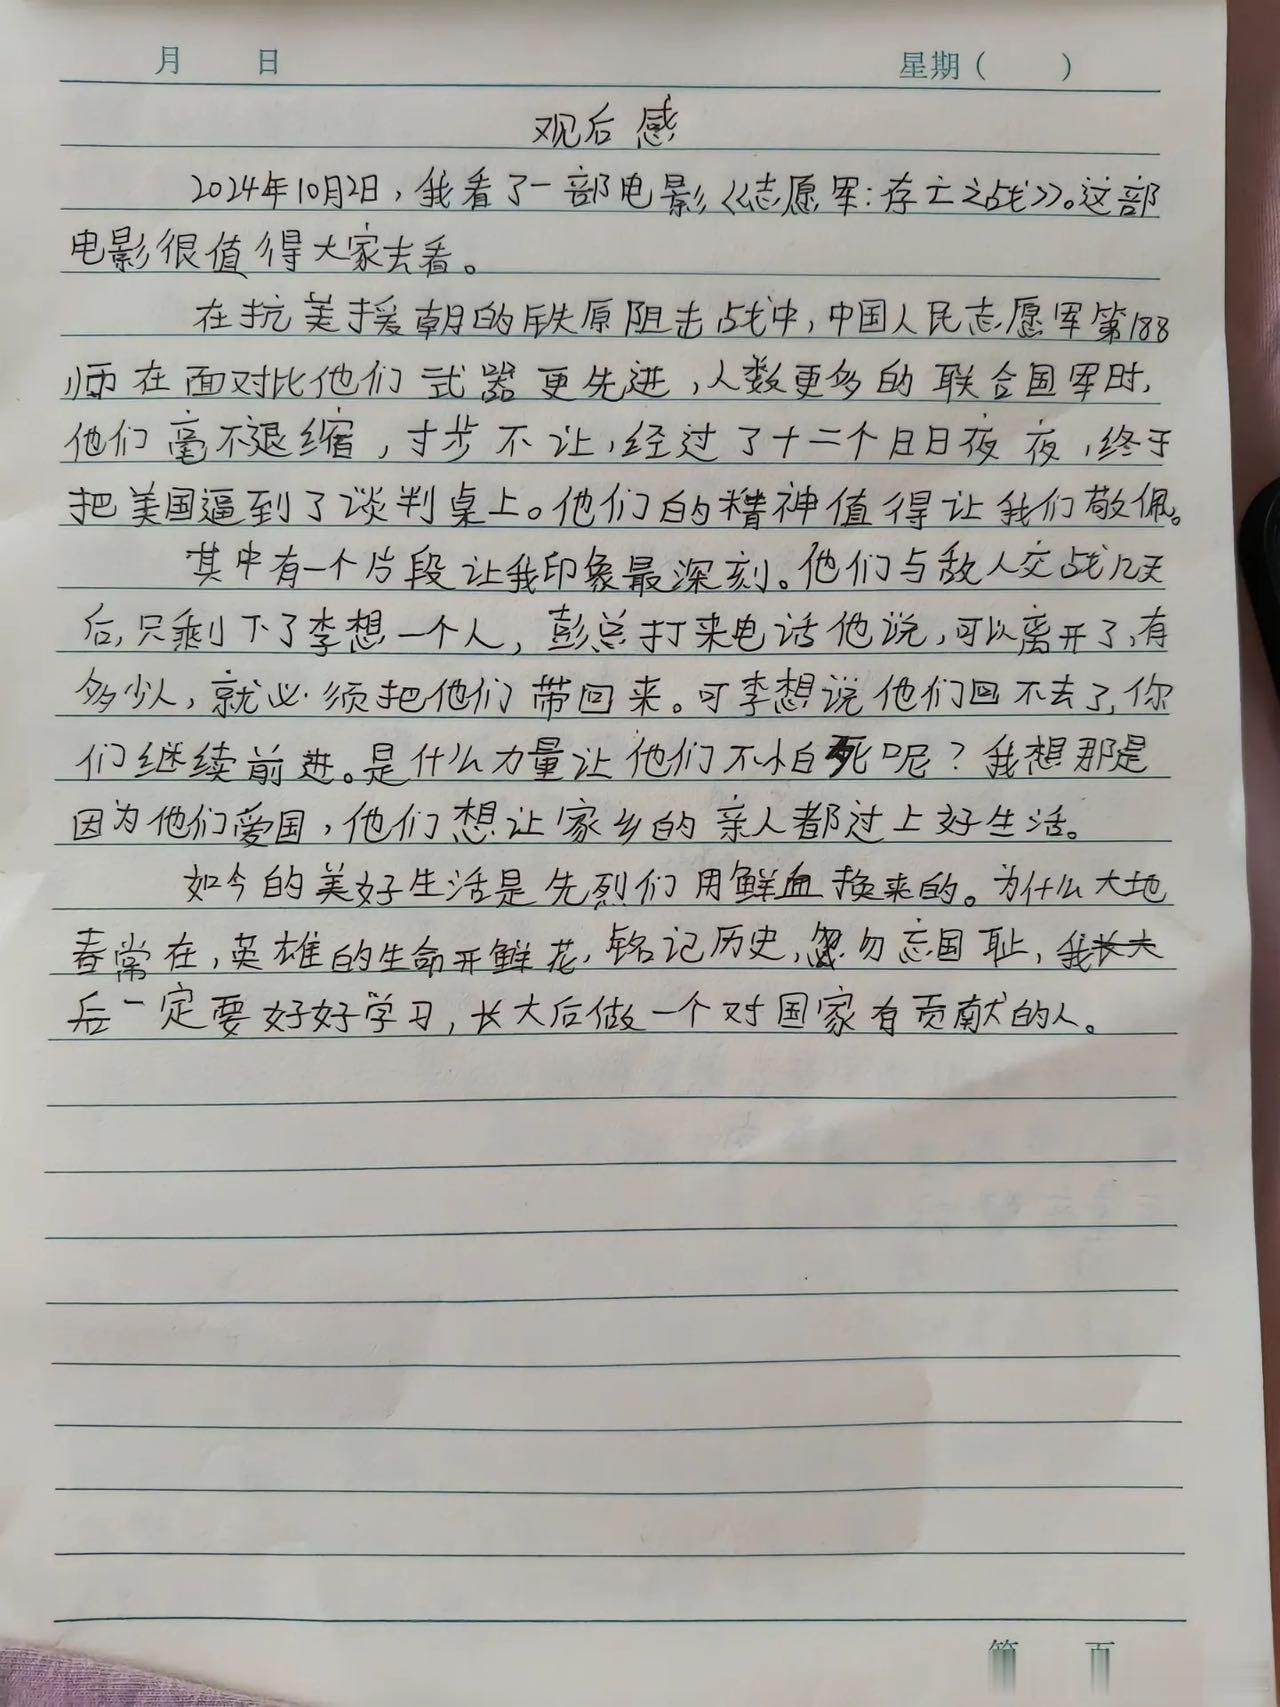 月 日 星期( )
观后感
2024年10月2日,我看了一部电影《志愿军:存亡之战》。这部
电影很值得大家去看。
在抗美援朝的铁原阻击战中,中国人民志愿军第188
师在面对比他们武器更先进,人数更多的联合国军时,
他们毫不退缩,寸步不让,经过了十二个日日夜夜,终于
把美国逼到了谈判桌上。他们的精神值得让我们敬佩。
其中有一个片段让我印象最深刻。他们与敌人交战几天
后,只剩下了李想一个人,彭总打来电话他说,可以离开了,有
多少人,就必须把他们带回来。可李想说他们回不去了,你
们继续前进。是什么力量让他们不怕死呢?我想那是
因为他们爱国,他们想让家乡的亲人都过上好生活。
如今的美好生活是先烈们用鲜血换来的。为什么大地
春常在,英雄的生命开鲜花,铭记历史,勿忘国耻,我长大
后一定要好好学习,长大后做一个对国家有贡献的人。
第 页